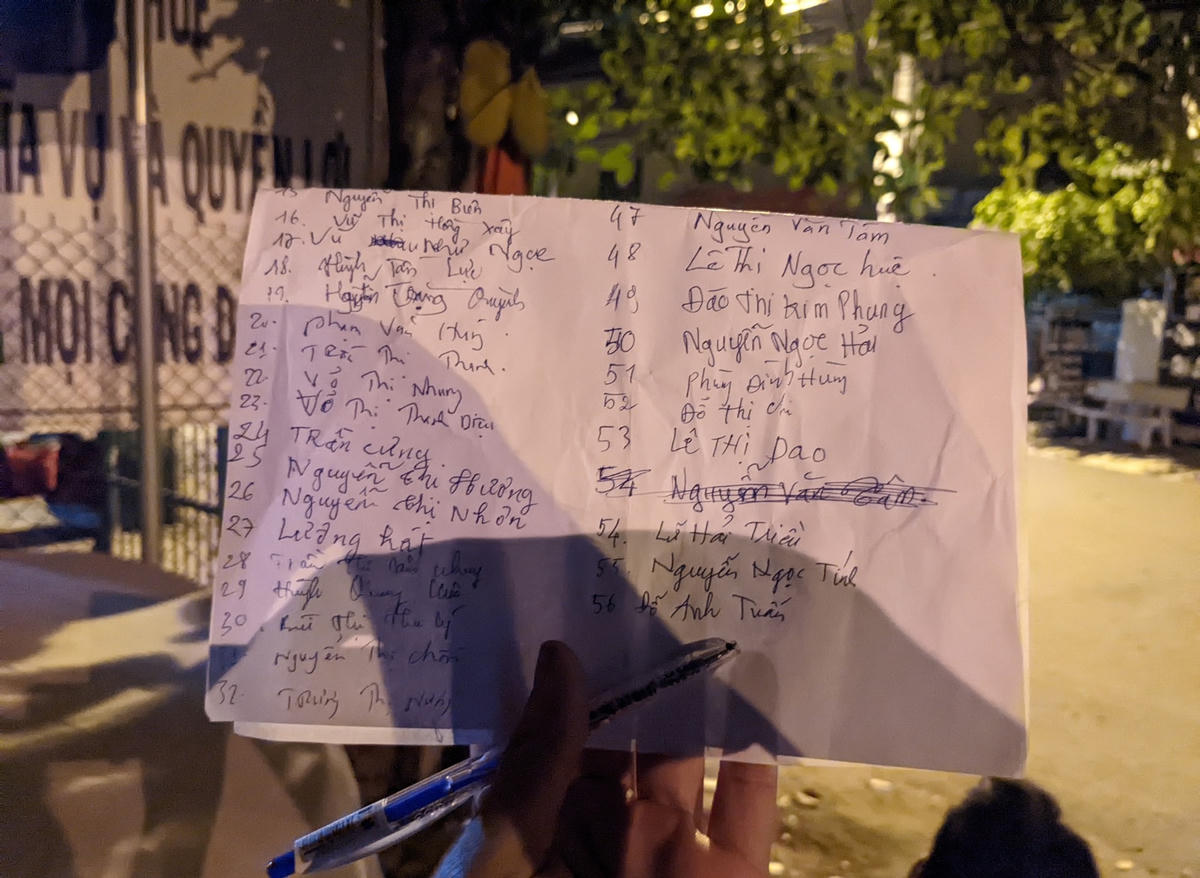 HUẾ
VỤ VÀ QUYỀN LỢI
MỌI CÔNG D
15 Nguyễn Thị Biên
16. Vũ Thị Hồng Xây
17. Vũ Như Ngọc
18. Huỳnh Tấn Lực
19. Nguyễn Quỳnh
20. Phạm Văn Hùng
21. Trần Thị Thanh
22. Võ Thị Nhung
23. Võ Thị Thanh Diệu
24 Trần Cưng
25 Nguyễn thị Hường
26 Nguyễn thị Nhơn
27 Lường hát
28 Trần thị
29 Huỳnh
30. thị thu
Nguyễn Thị
32. Thị
47 Nguyễn Văn Tâm
48 Lê Thị Ngọc huệ.
49 Đào thị kim Phụng
50 Nguyễn Ngọc Hải
51 Phùng Đình Hùng
52 Đỗ thị
53 LÊ THỊ DAO
54 Nguyễn Văn Tâm
54. Lữ Hải Triều
55. Nguyễn Ngọc Tính
56 Đỗ Anh Tuấn